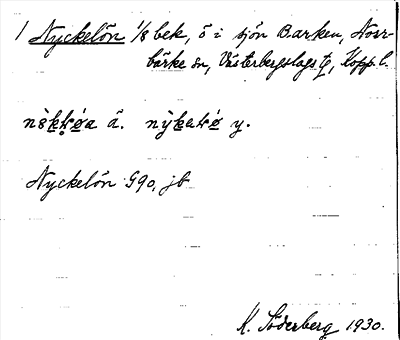 1 Nyckelön 1/8 bek, ö i sjön Barken, Norr-
bärke sn, Västerbergslags tg, Kopp. l.
ä. y.
Nyckelön G90, jb
K. Söderberg 1930.